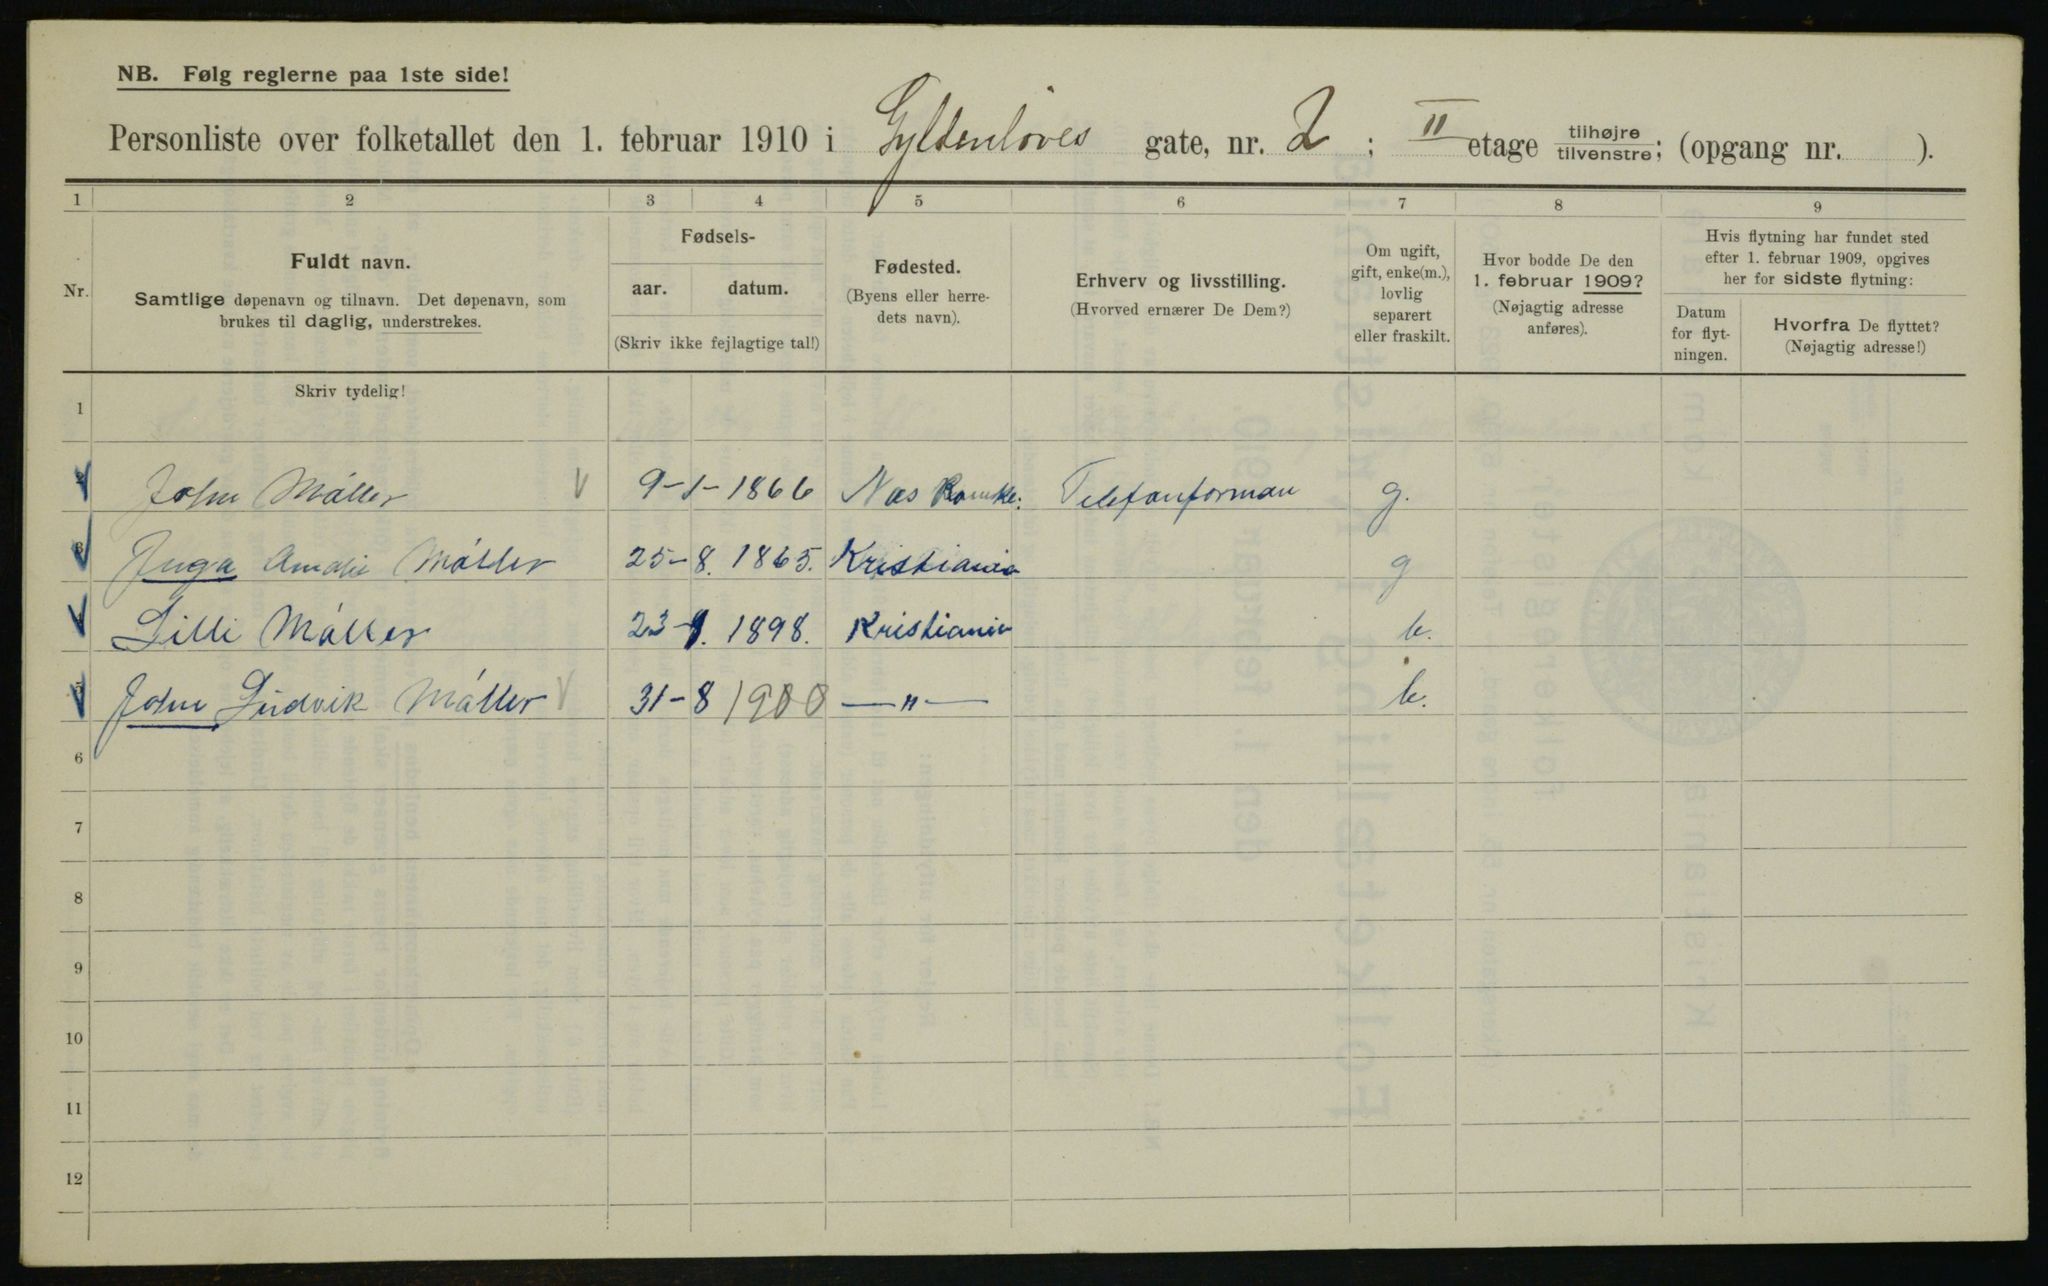 NB. Følg reglerne paa 1ste side!
Personliste over folketallet den 1. februar 1910 i Gyldenløves gate, nr. 2 ; II etage tilhøjre tilvenstre; (opgang nr. ).
1 2 3 4 5 6 7 8 9
Nr.
Fuldt navn.
Samtlige døpenavn og tilnavn. Det døpenavn, som
brukes til daglig, understrekes.
Fødsels-
aar. datum.
(Skriv ikke fejlagtige tal!)
Fødested.
(Byens eller herre-
dets navn).
Erhverv og livsstilling.
(Hvorved ernærer De Dem?)
Om ugift,
gift, enke(m.),
lovlig
separert
eller fraskilt.
Hvor bodde De den
1. februar 1909?
(Nøjagtig adresse
anføres).
Hvis flytning har fundet sted
efter 1. februar 1909, opgives
her for sidste flytning:
Datum
for flyt-
ningen.
Hvorfra De flyttet?
(Nøjagtig adresse!)
Skriv tydelig!
1
John Møller 9-1-1866 Næs Romke: Telefonforman g.
Inga Amalie Møller 25-8. 1865. Kristiania g
Lilli Møller 23- 1898. Kristiania b.
John Ludvik Møller 31-8 1900 —"— b.
6
7
8
9
10
11
12